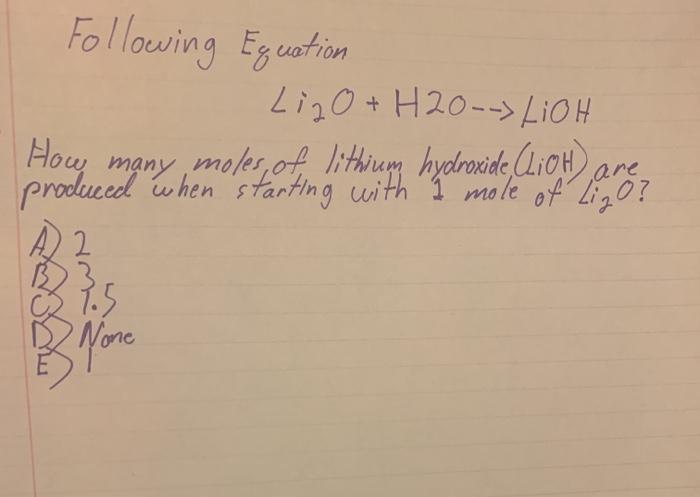 Following Equation
Li₂O + H2O--> LiOH
How many moles of lithium hydroxide (LiOH) are
produced when starting with 1 mole of Li₂O?
A) 2
B) 3
C) 1.5
D) None
E) 1